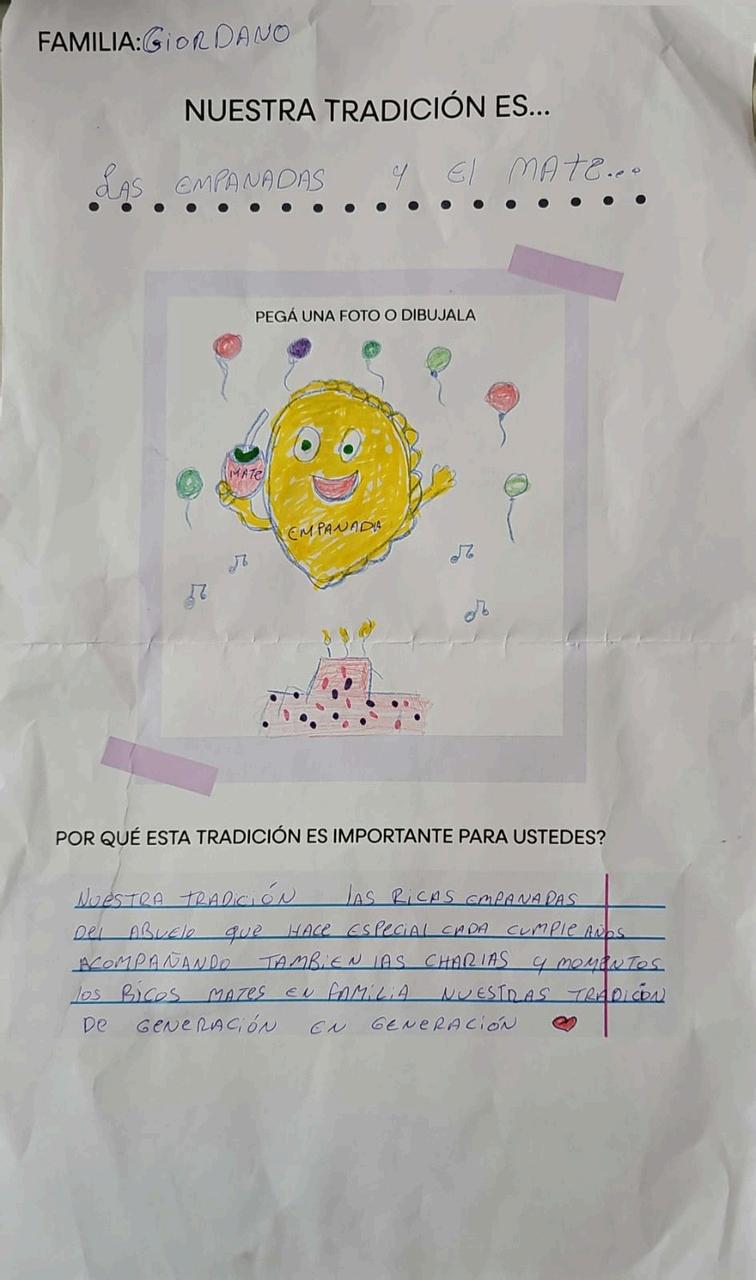 FAMILIA: GIORDANO
NUESTRA TRADICIÓN ES...
LAS EMPANADAS Y El MATE...
PEGÁ UNA FOTO O DIBUJALA
MATE
EMPANADA
POR QUÉ ESTA TRADICIÓN ES IMPORTANTE PARA USTEDES?
NUESTRA TRADICIÓN lAS RICAS EMPANADAS
DEl ABUElO QUE HACE ESPECIAL CADA CUMPLEAÑOS
ACOMPAÑANDO TAMBIEN lAS CHARlAS Y MOMENTOS
lOS RICOS MATES EN FAMILIA NUESTRAS TRADICIÓN
DE GENERACIÓN EN GENERACIÓN ❤